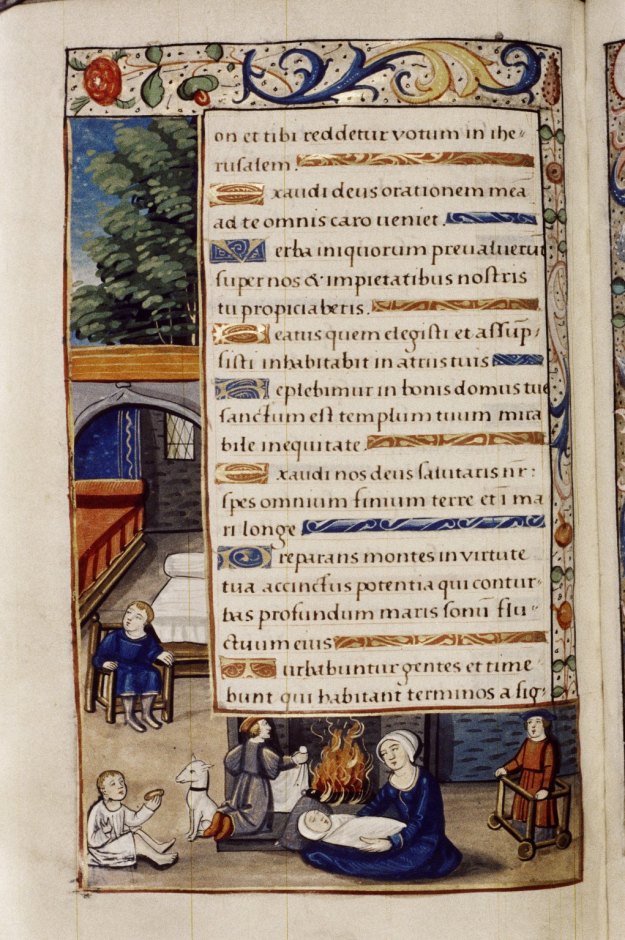 on et tibi reddetur votum in ihe-
rusalem.
Exaudi deus orationem mea
ad te omnis caro veniet.
Verba iniquorum prevaluerut
super nos & impietatibus nostris
tu propiciaberis.
Beatus quem elegisti et assup-
sisti inhabitabit in atriis tuis
Replebimur in bonis domus tue
sanctum est templum tuum mira
bile in equitate.
Exaudi nos deus salutaris nr:
spes omnium finium terre et i ma
ri longe
Preparans montes in virtute
tua accinctus potentia qui contur-
bas profundum maris sonu flu-
ctuum eius
Turbabuntur gentes et time-
bunt qui habitant terminos a sig-